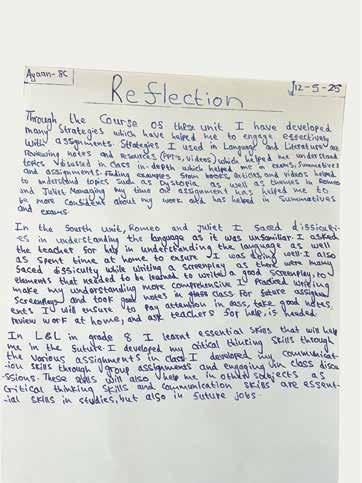 Ayaan-8C
12-5-25
Reflection
Through the Course of these unit I have developed
many strategies which have helped me to engage effectively
with assignments. Strategies I used in Language and Literature are
Reviewing notes and resources (PPT's, videos) which helped me understand
topics discussed in class in-depth which helped me in exams, Summatives
and assignments. Finding examples from books, articles, and videos helped
to understand topics such as Dystopia as well as themes in Romeo
and Juliet. Managing my time on assignment has helped me to
be more confident about my work and has helped in Summatives
and exams.
In the fourth unit, Romeo and Juliet I faced difficulti-
es in understanding the language as it was unfamiliar. I asked
the teacher for help in understanding the language as well
as spent time at home to ensure I was doing well. I also
faced difficulty while writing a screenplay as there were many
elements that needed to be learned to write a good screenplay, to
make my understanding more comprehensive I practiced writing
Screenplays and took good notes in class for future assignm-
ents I will ensure to pay attention in class, take good notes,
review work at home, and ask teachers for help, if needed.
In L&L in grade 8 I learnt essential skills that will help
me in the future. I developed my critical thinking skills through
the various assignments in class. I developed my communicat-
ion skills through group assignments and engaging in class discu-
ssions. These skills will also help me in other subjects as
Critical thinking skills and communication skills are essent-
ial skills in studies, but also in future jobs.